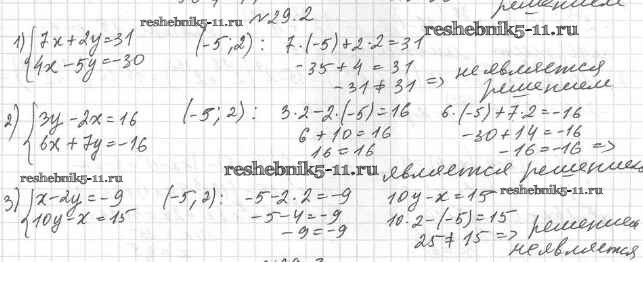 решением
reshebnik5-11.ru №29.2
reshebnik5-11.ru
1) { 7x+2y=31 (-5;2): 7·(-5)+2·2=31
4x-5y=-30 -35+4=31 не является
-31≠31 => решением
2) { 3y-2x=16 (-5;2): 3·2-2·(-5)=16 6·(-5)+7·2=-16
6x+7y=-16 6+10=16 -30+14=-16
16=16 -16=-16 =>
reshebnik5-11.ru является решением
reshebnik5-11.ru
3) { x-2y=-9 (-5,2): -5-2·2=-9 10y-x=15 reshebnik5-11.ru
10y-x=15 -5-4=-9 10·2-(-5)=15
-9=-9 25≠15 => решением
не является